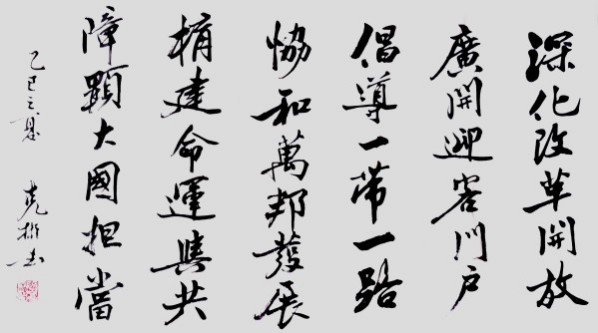 深化改革開放
廣開迎客門户
倡導一帶一路
協和萬邦發展
構建命運與共
障顯大國担當
乙巳之夏
克彬書